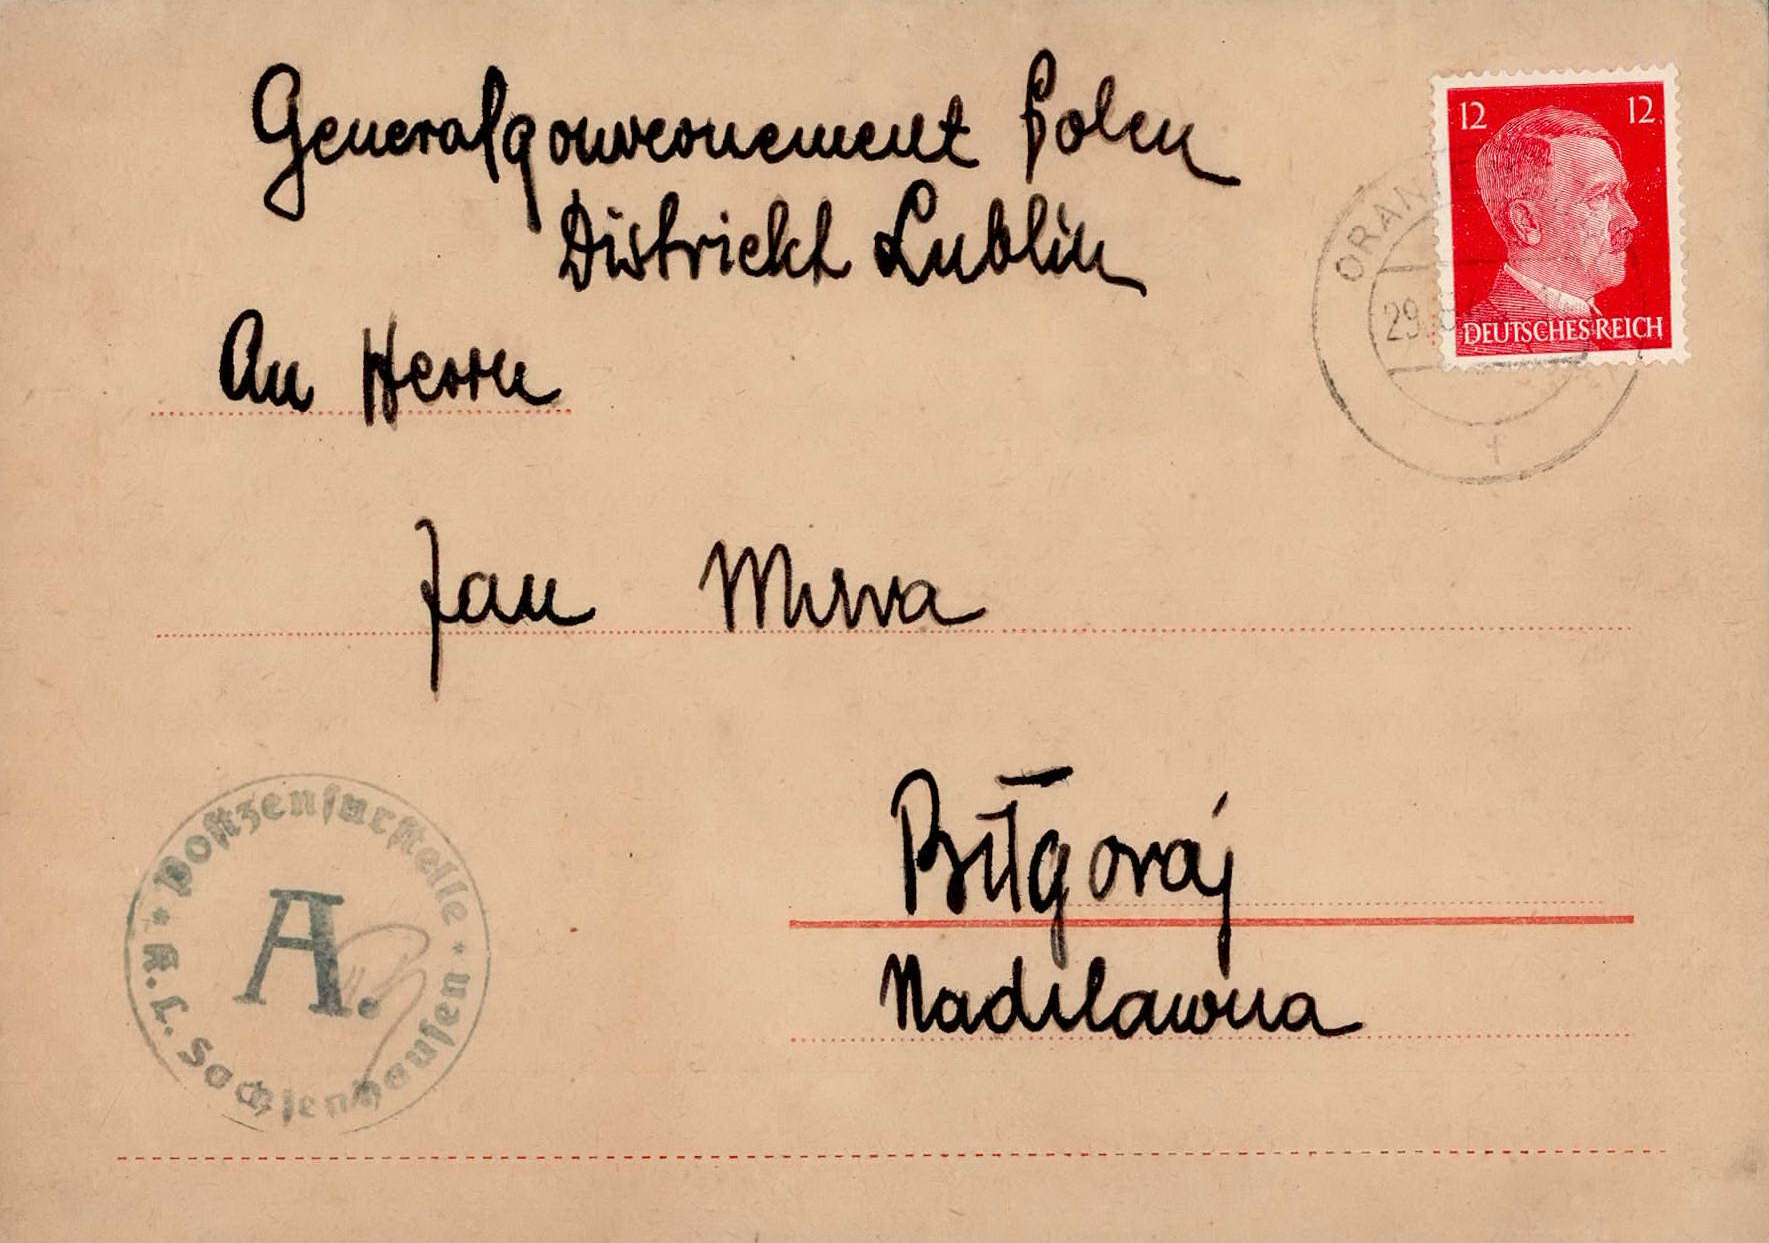 Generalgouvernement Polen
Districkt Lublin
12 12
DEUTSCHES REICH
ORAN
29.
An Herrn
Jan
Biłgoraj
Nadilawna
Postzensurstelle
A.
K.L. Sachsenhausen